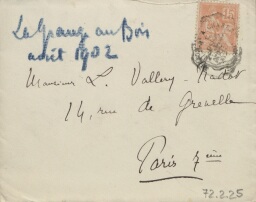 La Grange au Bois
août 1902
Monsieur L. Vallery-Radot
14, rue de Grenelle
Paris 7ème
72.2.25